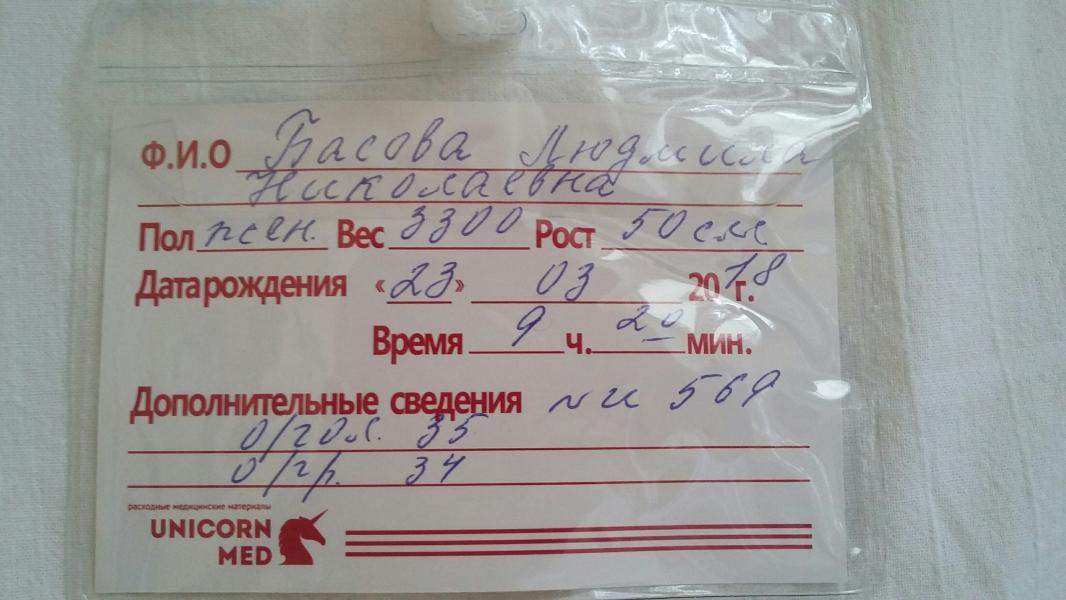 Ф.И.О Басова Людмила
Николаевна
Пол жен. Вес 3300 Рост 50 см
Дата рождения «23» 03 2018 г.
Время 9 ч. 20 мин.
Дополнительные сведения ри 569
о/гол. 35
о/гр. 34
расходные медицинские материалы
UNICORN
MED